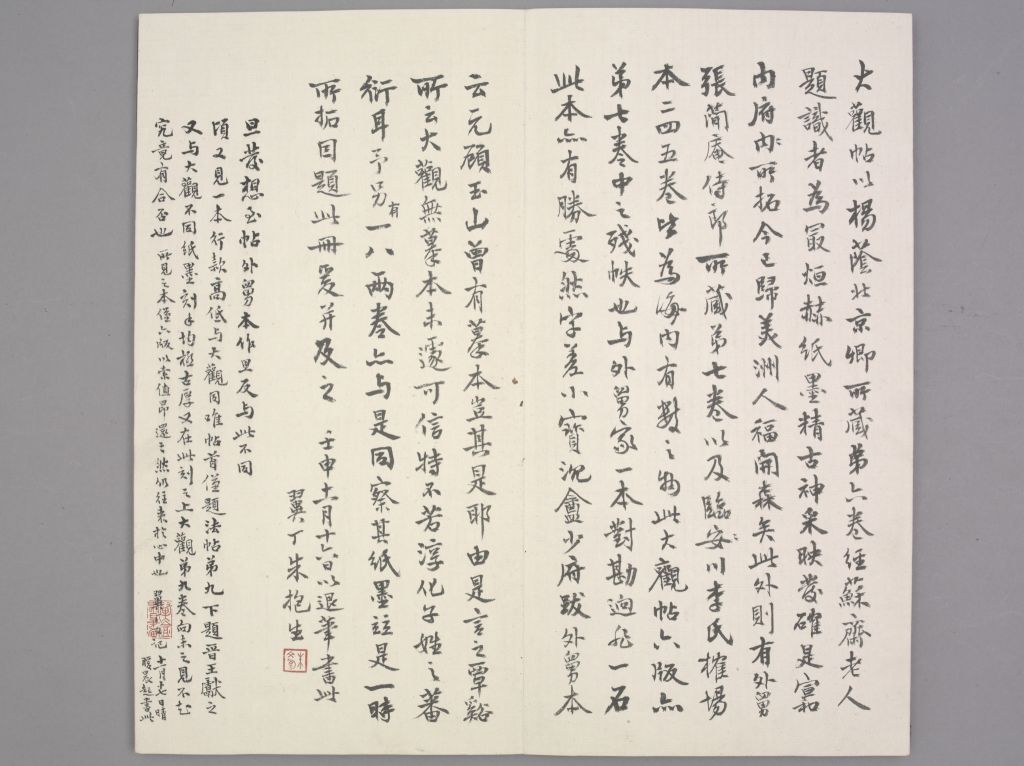 大觀帖以楊蔭北京卿所藏第六卷經蘇齋老人
題識者為最烜赫紙墨精古神采映發確是宣和
內府內所拓今已歸美洲人福開森矣此外則有外舅
張簡庵侍郎所藏第七卷以及臨安川李氏榷場
本二四五卷皆為海內有數之物此大觀帖六版亦
第七卷中之殘帙也与外舅家一本對勘迥非一石
此本亦有勝處然字差小寶沈盦少府跋外舅本
云元顧玉山曾有摹本豈其是耶由是言之覃谿
所云大觀無摹本未遽可信特不若淳化子姓之蕃
衍耳予另有一八兩卷亦与是同察其紙墨竝是一時
所拓因題此冊爰并及之 壬申十一月十六日以退筆書此
翼丁朱抱生
旦發想至帖外舅本作旦反与此不同
頃又見一本行款高低与大觀同唯帖首僅題法帖第九下題晉王獻之
又与大觀不同紙墨刻手均極古厚又在此刻之上大觀第九卷向未之見不知
究竟有合否也 所見之本僅六版以索值昂還之然仍往來於心中也 翼 記 十一月十七日晴
暖晨起書此